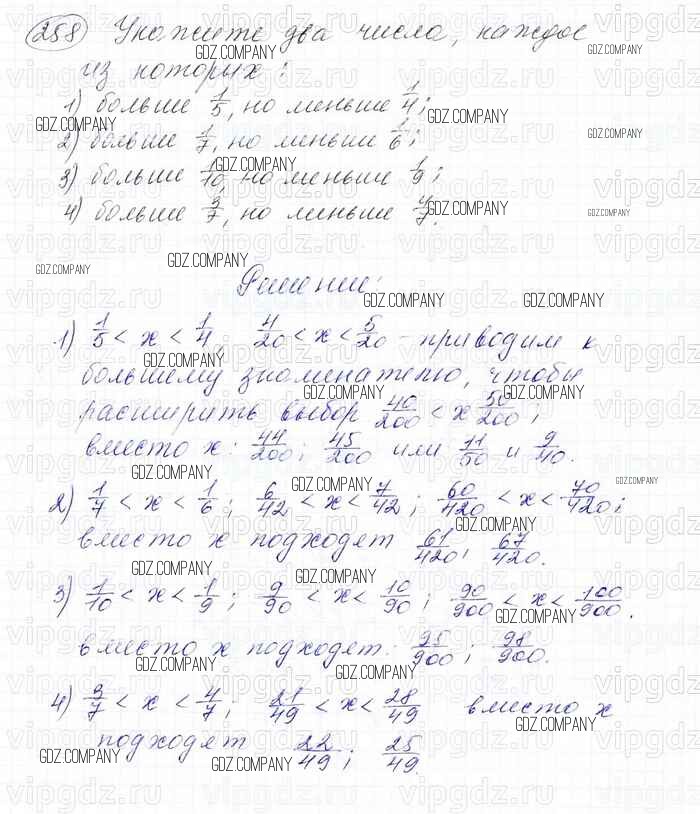 258 Укажите два числа, каждое
из которых:
1) больше 1/5, но меньше 1/4;
2) больше 1/7, но меньше 1/6;
3) больше 1/10, но меньше 1/9;
4) больше 3/7, но меньше 4/7.
Решение:
1) 1/5 < x < 1/4, 4/20 < x < 5/20 - приводим к
большему знаменателю, чтобы
расширить выбор 40/200 < x 50/200;
вместо x: 44/200; 45/200 или 11/50 и 9/40.
2) 1/7 < x < 1/6; 6/42 < x < 7/42; 60/420 < x < 70/420;
вместо x подходят 61/420; 67/420.
3) 1/10 < x < 1/9; 9/90 < x < 10/90; 90/900 < x < 100/900.
вместо x подходят: 95/900; 98/900.
4) 3/7 < x < 4/7; 21/49 < x < 28/49 вместо x
подходят 22/49; 25/49.
GDZ.COMPANY
vipgdz.ru